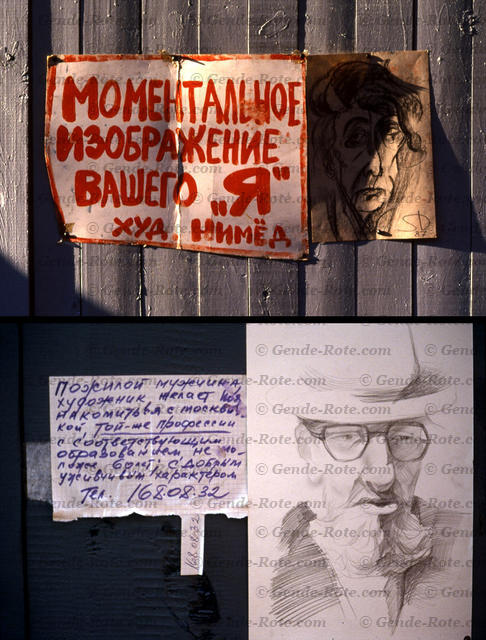 МОМЕНТАЛЬНОЕ
ИЗОБРАЖЕНИЕ
ВАШЕГО „Я"
ХУД. НИМЁД
Пожилой мужчина,
художник, желает поз
накомиться с москвич
кой, той-же профессии
с соответствующим
образованием не мо-
ложе лет, с добрым
уживчивым характером
Тел. 168.08.32
168.08.32
© Gende-Rote.com